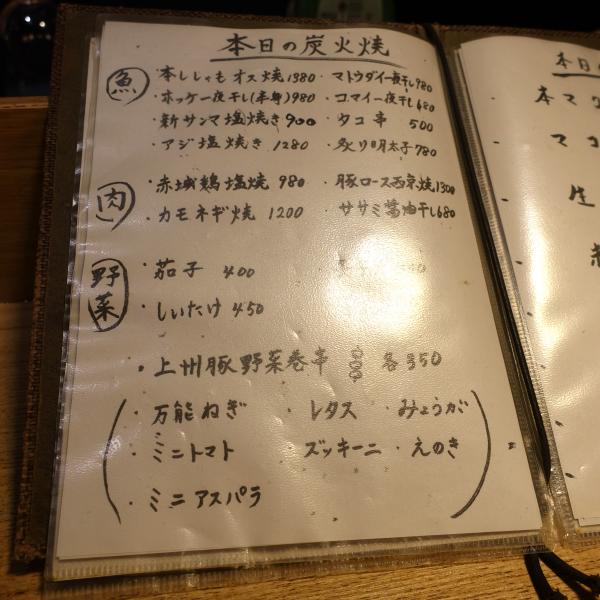 本日の炭火焼
魚
・本ししゃもオス焼 1380 ・マトウダイ一夜干し 980
・ホッケ一夜干し(半身) 980 ・コマイ一夜干し 680
・新サンマ塩焼き 900 ・タコ串 500
・アジ塩焼き 1280 ・炙り明太子 780
肉
・赤城鶏塩焼 980 ・豚ロース西京焼 1300
・カモネギ焼 1200 ・ササミ醤油干し 680
野菜
・茄子 400
・しいたけ 450
・上州豚野菜巻串 各350
・万能ねぎ ・レタス ・みょうが
・ミニトマト ・ズッキーニ ・えのき
・ミニアスパラ
本日の
本マグ
マコ
生